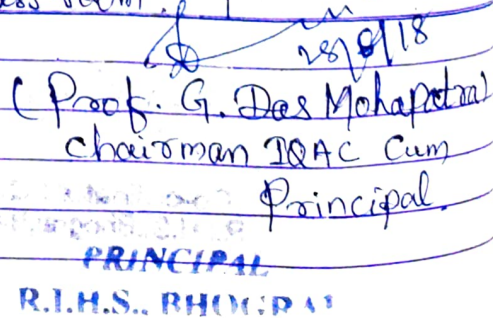 28/8/18
(Prof. G. Das Mohapatra)
Chairman IQAC Cum
Principal.
PRINCIPAL
R.I.H.S., BHOGRAI